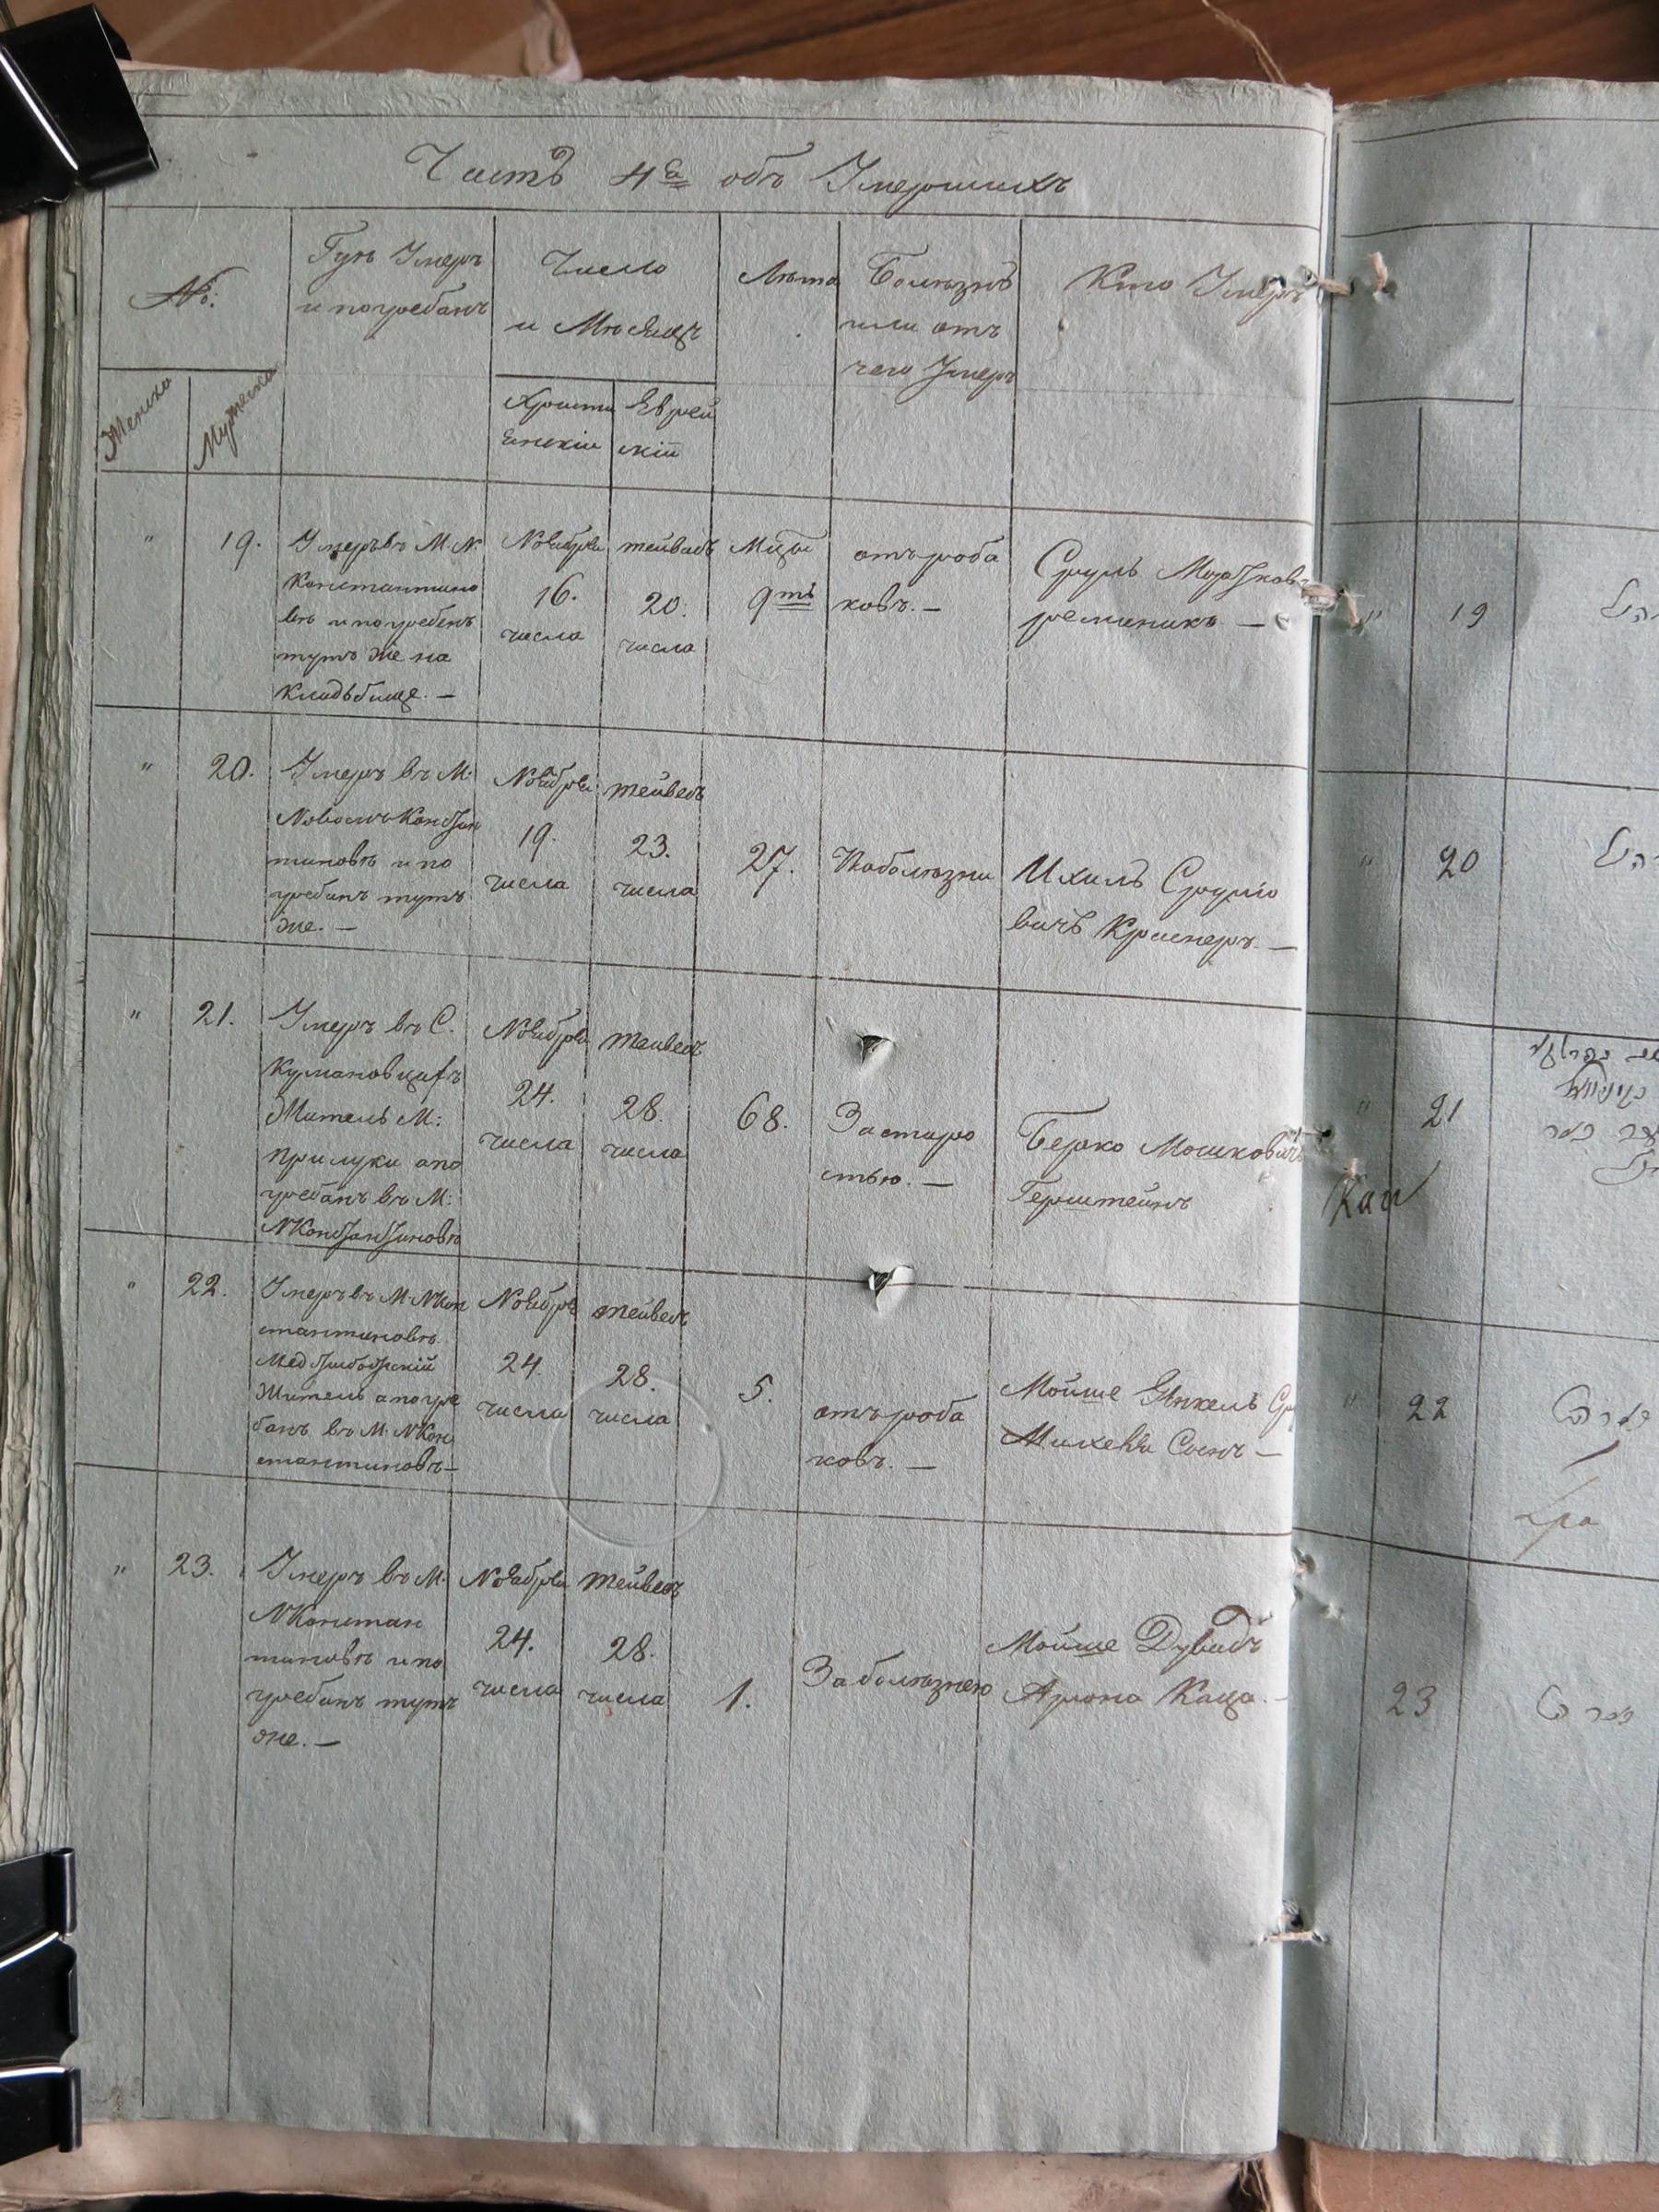 Часть 4а объ Умершихъ
№:
Женска
Мужеска
Гдѣ Умеръ
и погребанъ
Число
и Мѣсяцъ
Христи
янскiи
Еврей
скiй
Лѣта
Болѣзнь
или отъ
чего Умеръ
Кто Умеръ
" 19.
Умеръ въ М. N.
Константино
вѣ и погребенъ
тутъ же на
кладьбище. —
Ноября
16.
числа
тейвесъ
20.
числа
Мцы
9ть
отъ роба
ковъ. —
Сруль
ремыникъ —
" 20.
Умеръ въ М.
Константи
тиновѣ и по
гребанъ тутъ
же. —
Ноября
19.
числа
тейвесъ
23.
числа
27.
Поболѣзни
Ихиль Срулiо
вичъ Крыснеръ. —
" 21.
Умеръ въ С.
Кумановцахъ
Житель М:
Прилуки а по
гребанъ въ М:
NКонстантиновѣ
Ноября
24.
числа
тейвесъ
28.
числа
68.
За старо
стью. —
Берко Мошковичъ
Герштейнъ
" 22.
Умеръ въ М. NКон
стантиновѣ
Меджибожскiй
Житель а погре
банъ въ М. NКон
стантиновѣ —
Ноября
24.
числа
тейвесъ
28.
числа
5.
отъ роба
ковъ. —
Мойше Янкель
Сынъ —
" 23.
Умеръ въ М.
NКонстан
тиновѣ и по
гребанъ тутъ
же. —
Ноября
24.
числа
тейвесъ
28.
числа
1.
Заболѣзнею
Мойше Дувидъ
Арона Каца. —
" 19
" 20
" 21
" 22
23